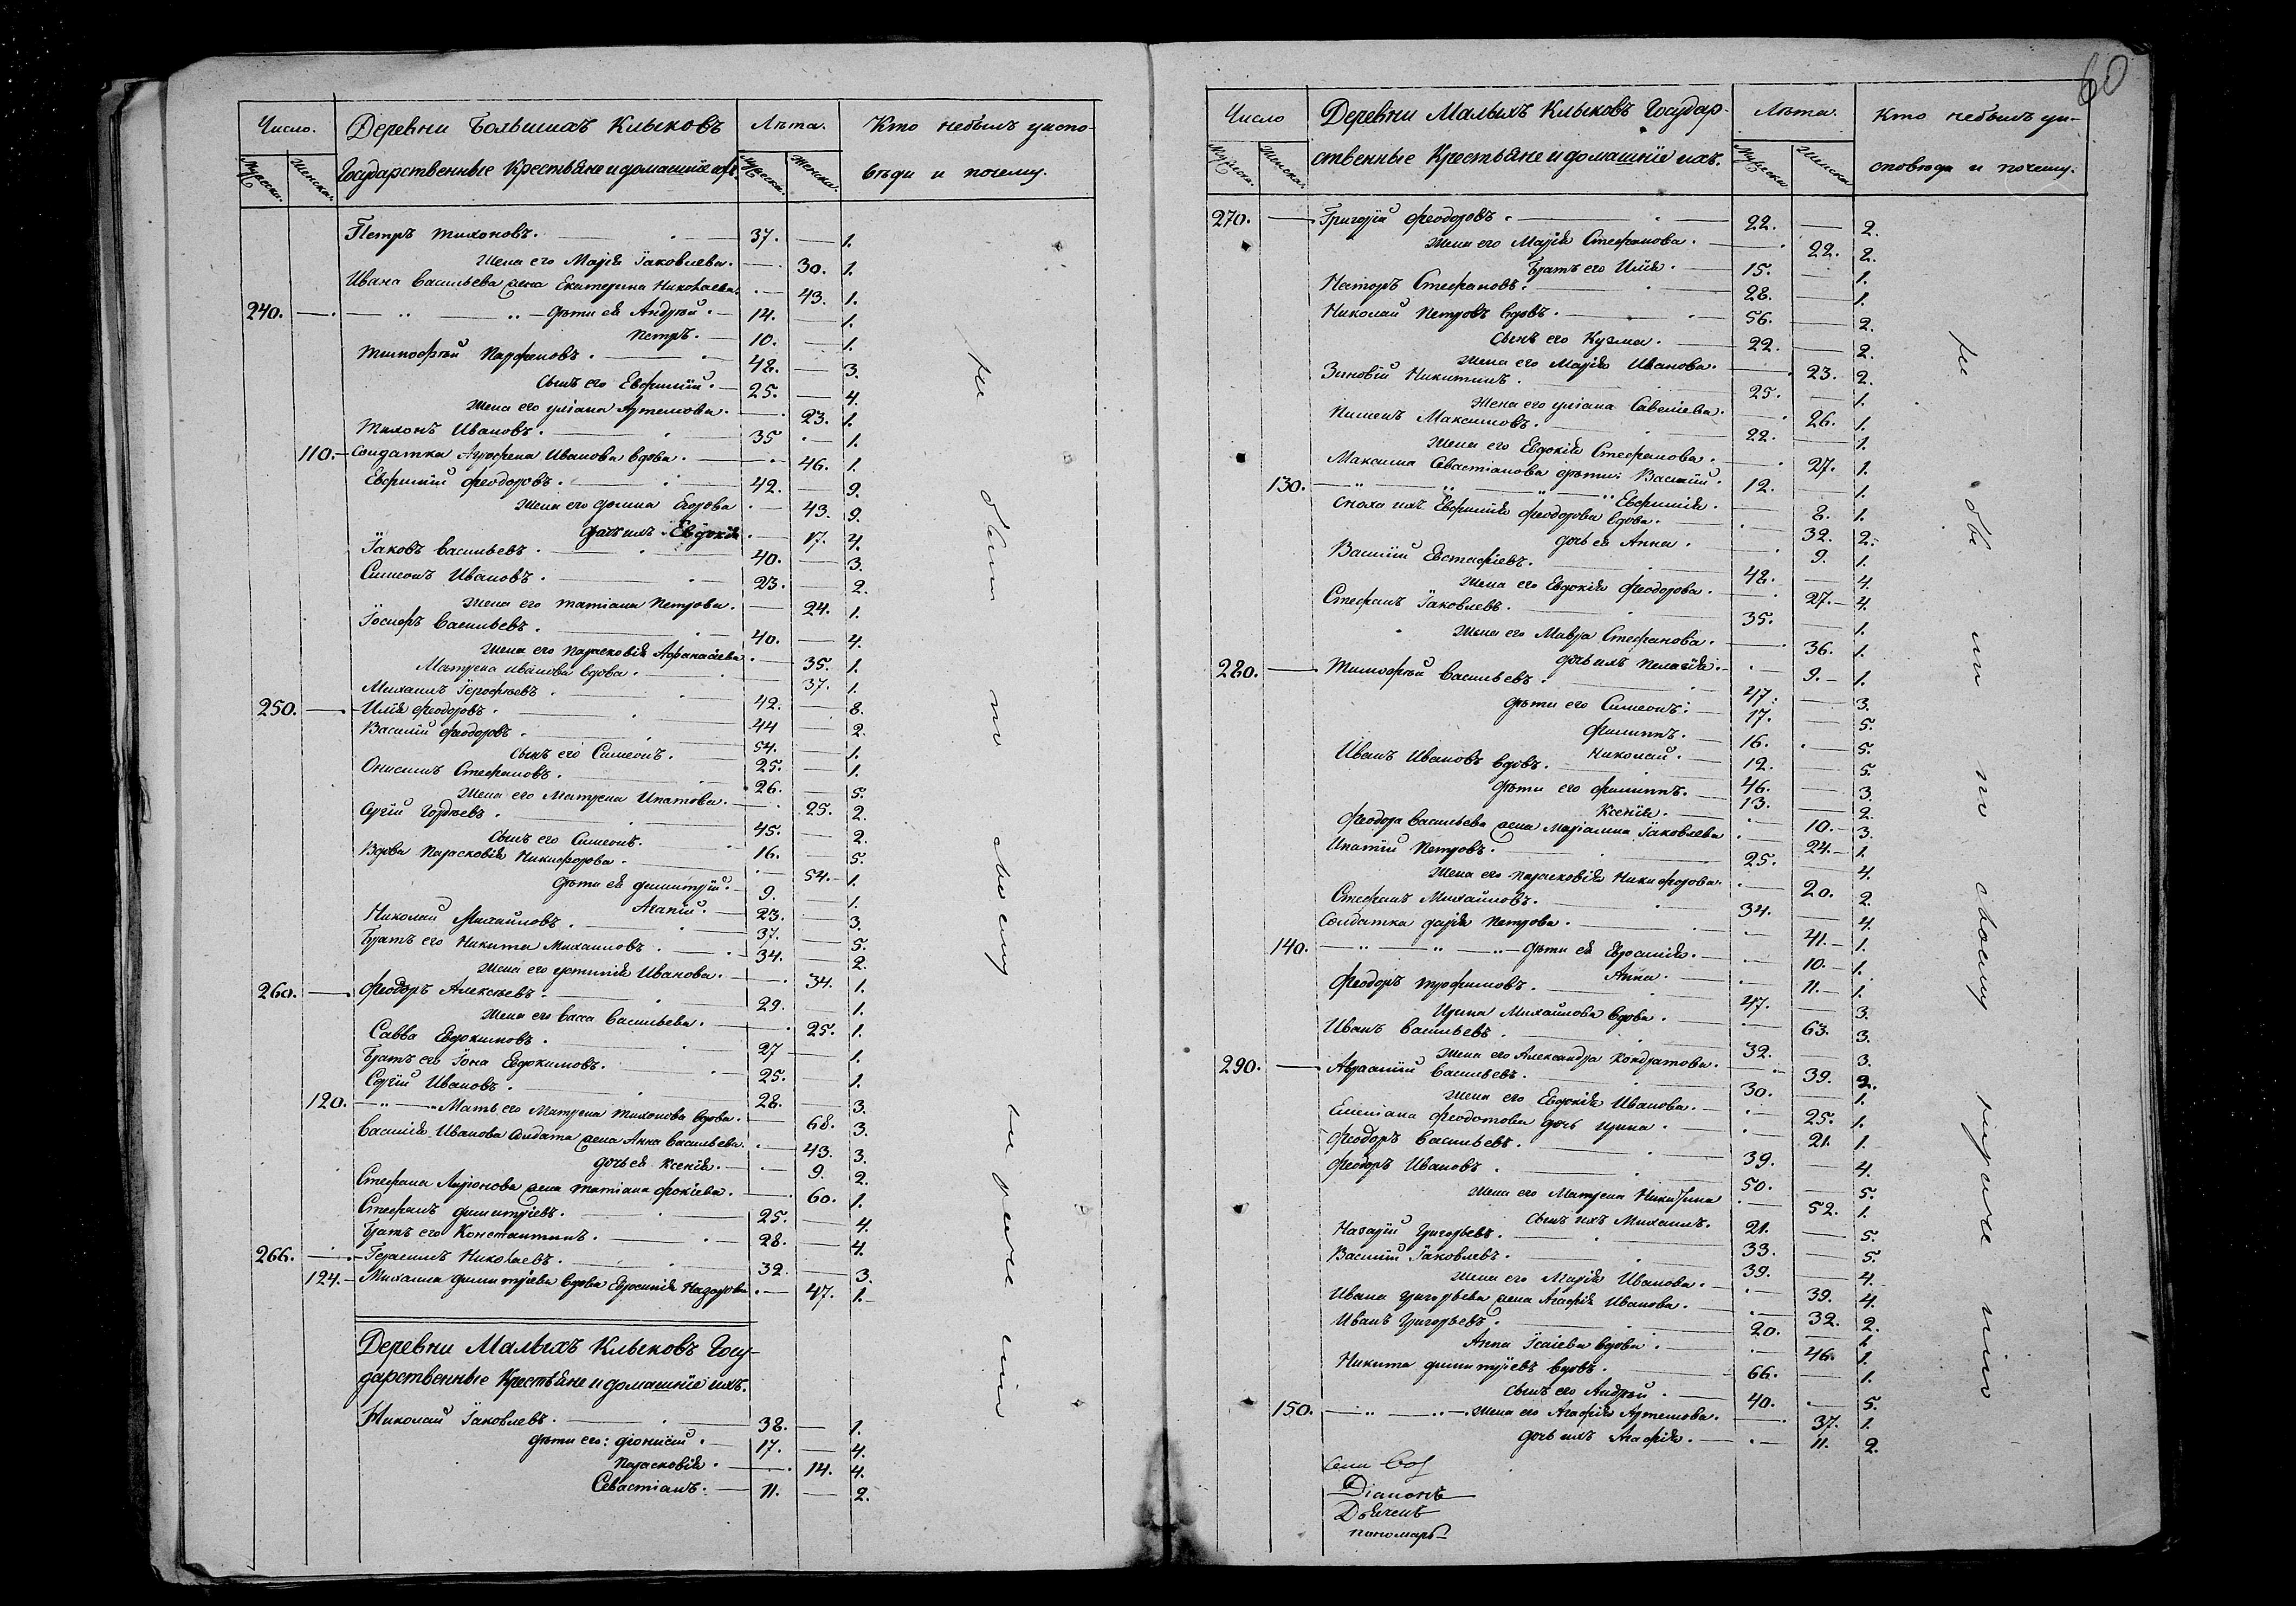 60
Число. Деревни Большихъ Клыковъ Лѣта. Кто небылъ уиспо-
Мужеска. Женска. Государственные Крестьяне и домашніе ихъ. Мужеска. Женска. вѣди и почему.
Петръ Тихоновъ. 37. — 1.
Жена его Марія Іаковлева. — 30. 1.
Ивана Васильева жена Екатерина Николаева. — 43. 1.
240. — дѣти ея Андрей. 14. — 1.
Петръ. 10. — 1.
Тимофей Парфеновъ. 48. — 3.
Сынъ его Евфимій. 25. — 4.
Жена его Уліана Артемова. — 23. 1.
Тихонъ Ивановъ. 35 — 1.
110. Солдатка Агрофена Иванова вдова. — 46. 1.
Евфимій Феодоровъ. 42. — 9.
Жена его Домна Егорова — 43. 9.
Дочь ихъ Евдокія. — 17. 4.
Іаковъ Васильевъ. 40. — 3.
Симеонъ Ивановъ. 23. — 2.
Жена его Татіана Петрова. — 24. 1.
Іосифъ Васильевъ. 40. — 4.
Жена его Парасковія Афанасіева. — 35. 1.
Матрена Иванова вдова. — 37. 1.
Михаилъ Іерофеевъ. 42. — 8.
250. — Илія Феодоровъ. 44 — 2.
Василій Феодоровъ. 54. — 1.
Сынъ его Симеонъ. 25. — 1.
Онисимъ Стефановъ. 26. — 5.
Жена его Матрена Ипатова. — 25. 2.
Сергій Гордѣевъ. 45. — 2.
Сынъ его Симеонъ. 16. — 5.
Вдова Парасковія Никифорова. — 54. 1.
Дѣти ея Димитрій. 9. — 1.
Агапій. 23. — 3.
Николай Михайловъ. 37. — 5.
Братъ его Никита Михаиловъ. 34. — 2.
Жена его Устинія Иванова. — 34. 1.
260. — Феодоръ Алексѣевъ. 29. — 1.
Жена его Васса Васильева. — 25. 1.
Савва Евдокимовъ. 27 — 1.
Братъ его Іона Евдокимовъ. 25. — 1.
Сергій Ивановъ. 28. — 3.
120. Мать его Матрена Тихонова вдова. — 68. 3.
Василія Иванова солдата жена Анна Васильева. — 43. 3.
Дочь ея Ксенія. — 9. 2.
Стефана Ларіонова жена Татіана Фокіева. — 60. 1.
Стефанъ Димитріевъ. 25. — 4.
Братъ его Константинъ. 28. — 4.
266. — Герасимъ Николаевъ. 32. — 3.
124. Михаила Димитріева вдова Евросинія Назарова. — 47. 1.
Деревни Малыхъ Клыковъ Госу-
дарственные Крестьяне и домашніе ихъ.
Николай Іаковлевъ. 38. — 1.
Дѣти его: Діонисій. 17. — 4.
Парасковія. — 14. 4.
Севастіанъ. 11. — 2.
Число Деревни Малыхъ Клыковъ Государ- Лѣта. Кто небылъ уи-
Мужеска. Женска. ственные Крестьяне и домашніе ихъ. Мужеска. Женска. сповѣди и почему.
270. — Григорій Феодоровъ. 22. — 2.
Жена его Марія Стефанова. — 22. 2.
Братъ его Илія. 15. — 1.
Несторъ Стефановъ. 28. — 1.
Николай Петровъ вдовъ. 56. — 2.
Сынъ его Кузма. 22. — 2.
Жена его Марія Иванова. — 23. 2.
Зиновій Никитинъ. 25. — 1.
Жена его Уліана Савеліева. — 26. 1.
Пименъ Максимовъ. 22. — 1.
Жена его Евдокія Стефанова. — 27. 1.
Максима Севастіанова дѣти: Василій. 12. — 1.
130. Евфимія. — 8. 1.
Сноха ихъ Евфимія Феодорова вдова. — 32. 2.
Дочь ея Анна. — 9. 1.
Василій Евстафіевъ. 48. — 4.
Жена его Евдокія Феодорова. — 27. 4.
Стефанъ Іаковлевъ. 35. — 1.
Жена его Мавра Стефанова. — 36. 1.
Дочь ихъ Пелагія. — 9. 1.
280. — Тимофей Васильевъ. 47. — 3.
Дѣти его Симеонъ. 17. — 5.
Филиппъ. 16. — 5.
Николай. 12. — 5.
Иванъ Ивановъ вдовъ. 46. — 3.
Дѣти его Филиппъ. 13. — 2.
Ксенія. — 10. 3.
Феодора Васильева жена Маріамна Іаковлева — 24. 1.
Ипатій Петровъ. 25. — 4.
Жена его Парасковія Никифорова. — 20. 2.
Стефанъ Михаиловъ. 34. — 4.
Солдатка Дарія Петрова. — 41. 1.
140. дѣти ея Евросинія. — 10. 1.
Анна. — 11. 1.
Феодоръ Трофимовъ. 47. — 3.
Ирина Михаилова вдова. — 63. 3.
Иванъ Васильевъ. 32. — 3.
Жена его Александра Кондратова. — 39. 2.
290. — Авраамій Васильевъ. 30. — 1.
Жена его Евдокія Иванова. — 25. 1.
Емеліана Феодотова дочь Ирина. — 21. 1.
Феодоръ Васильевъ. 39. — 4.
Феодоръ Ивановъ. 50. — 5.
Жена его Матрена Никитина — 52. 1.
Сынъ ихъ Михаилъ. 21. — 5.
Назарій Григорьевъ. 33. — 5.
Василій Іаковлевъ. 39. — 4.
Жена его Марія Иванова. — 39. 4.
Ивана Григорьева жена Агафія Иванова. — 32. 2.
Иванъ Григорьевъ. 20. — 1.
Анна Ісаіева вдова. — 46. 1.
Никита Димитріевъ вдовъ. 66. — 1.
Сынъ его Андрей. 40. — 5.
150. Жена его Агафія Артемова. — 37. 1.
Дочь ихъ Агафія. — 11. 2.
Діаконъ
Дьячекъ
пономарь